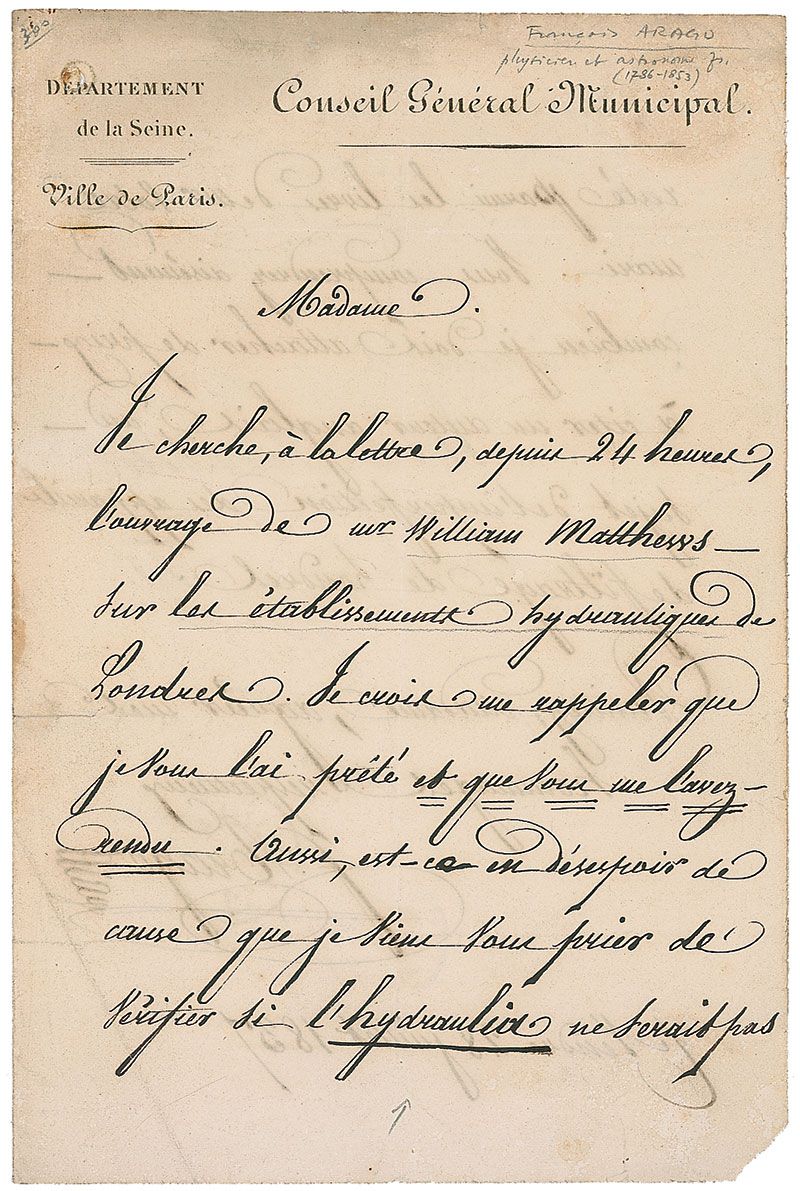 300
François ARAGO
physicien et astronome fr.
(1786-1853)
DÉPARTEMENT
de la Seine.
Ville de Paris.
Conseil Général Municipal.
Madame.
Je cherche, à la lettre, depuis 24 heures,
l'ouvrage de mr William Matthews
sur les établissements hydrauliques de
Londres. Je crois me rappeler que
je vous l'ai prêté et que vous me l'avez
rendu. Aussi, est-ce en désespoir de
cause que je viens vous prier de
vérifier si l'hydraulia ne serait pas